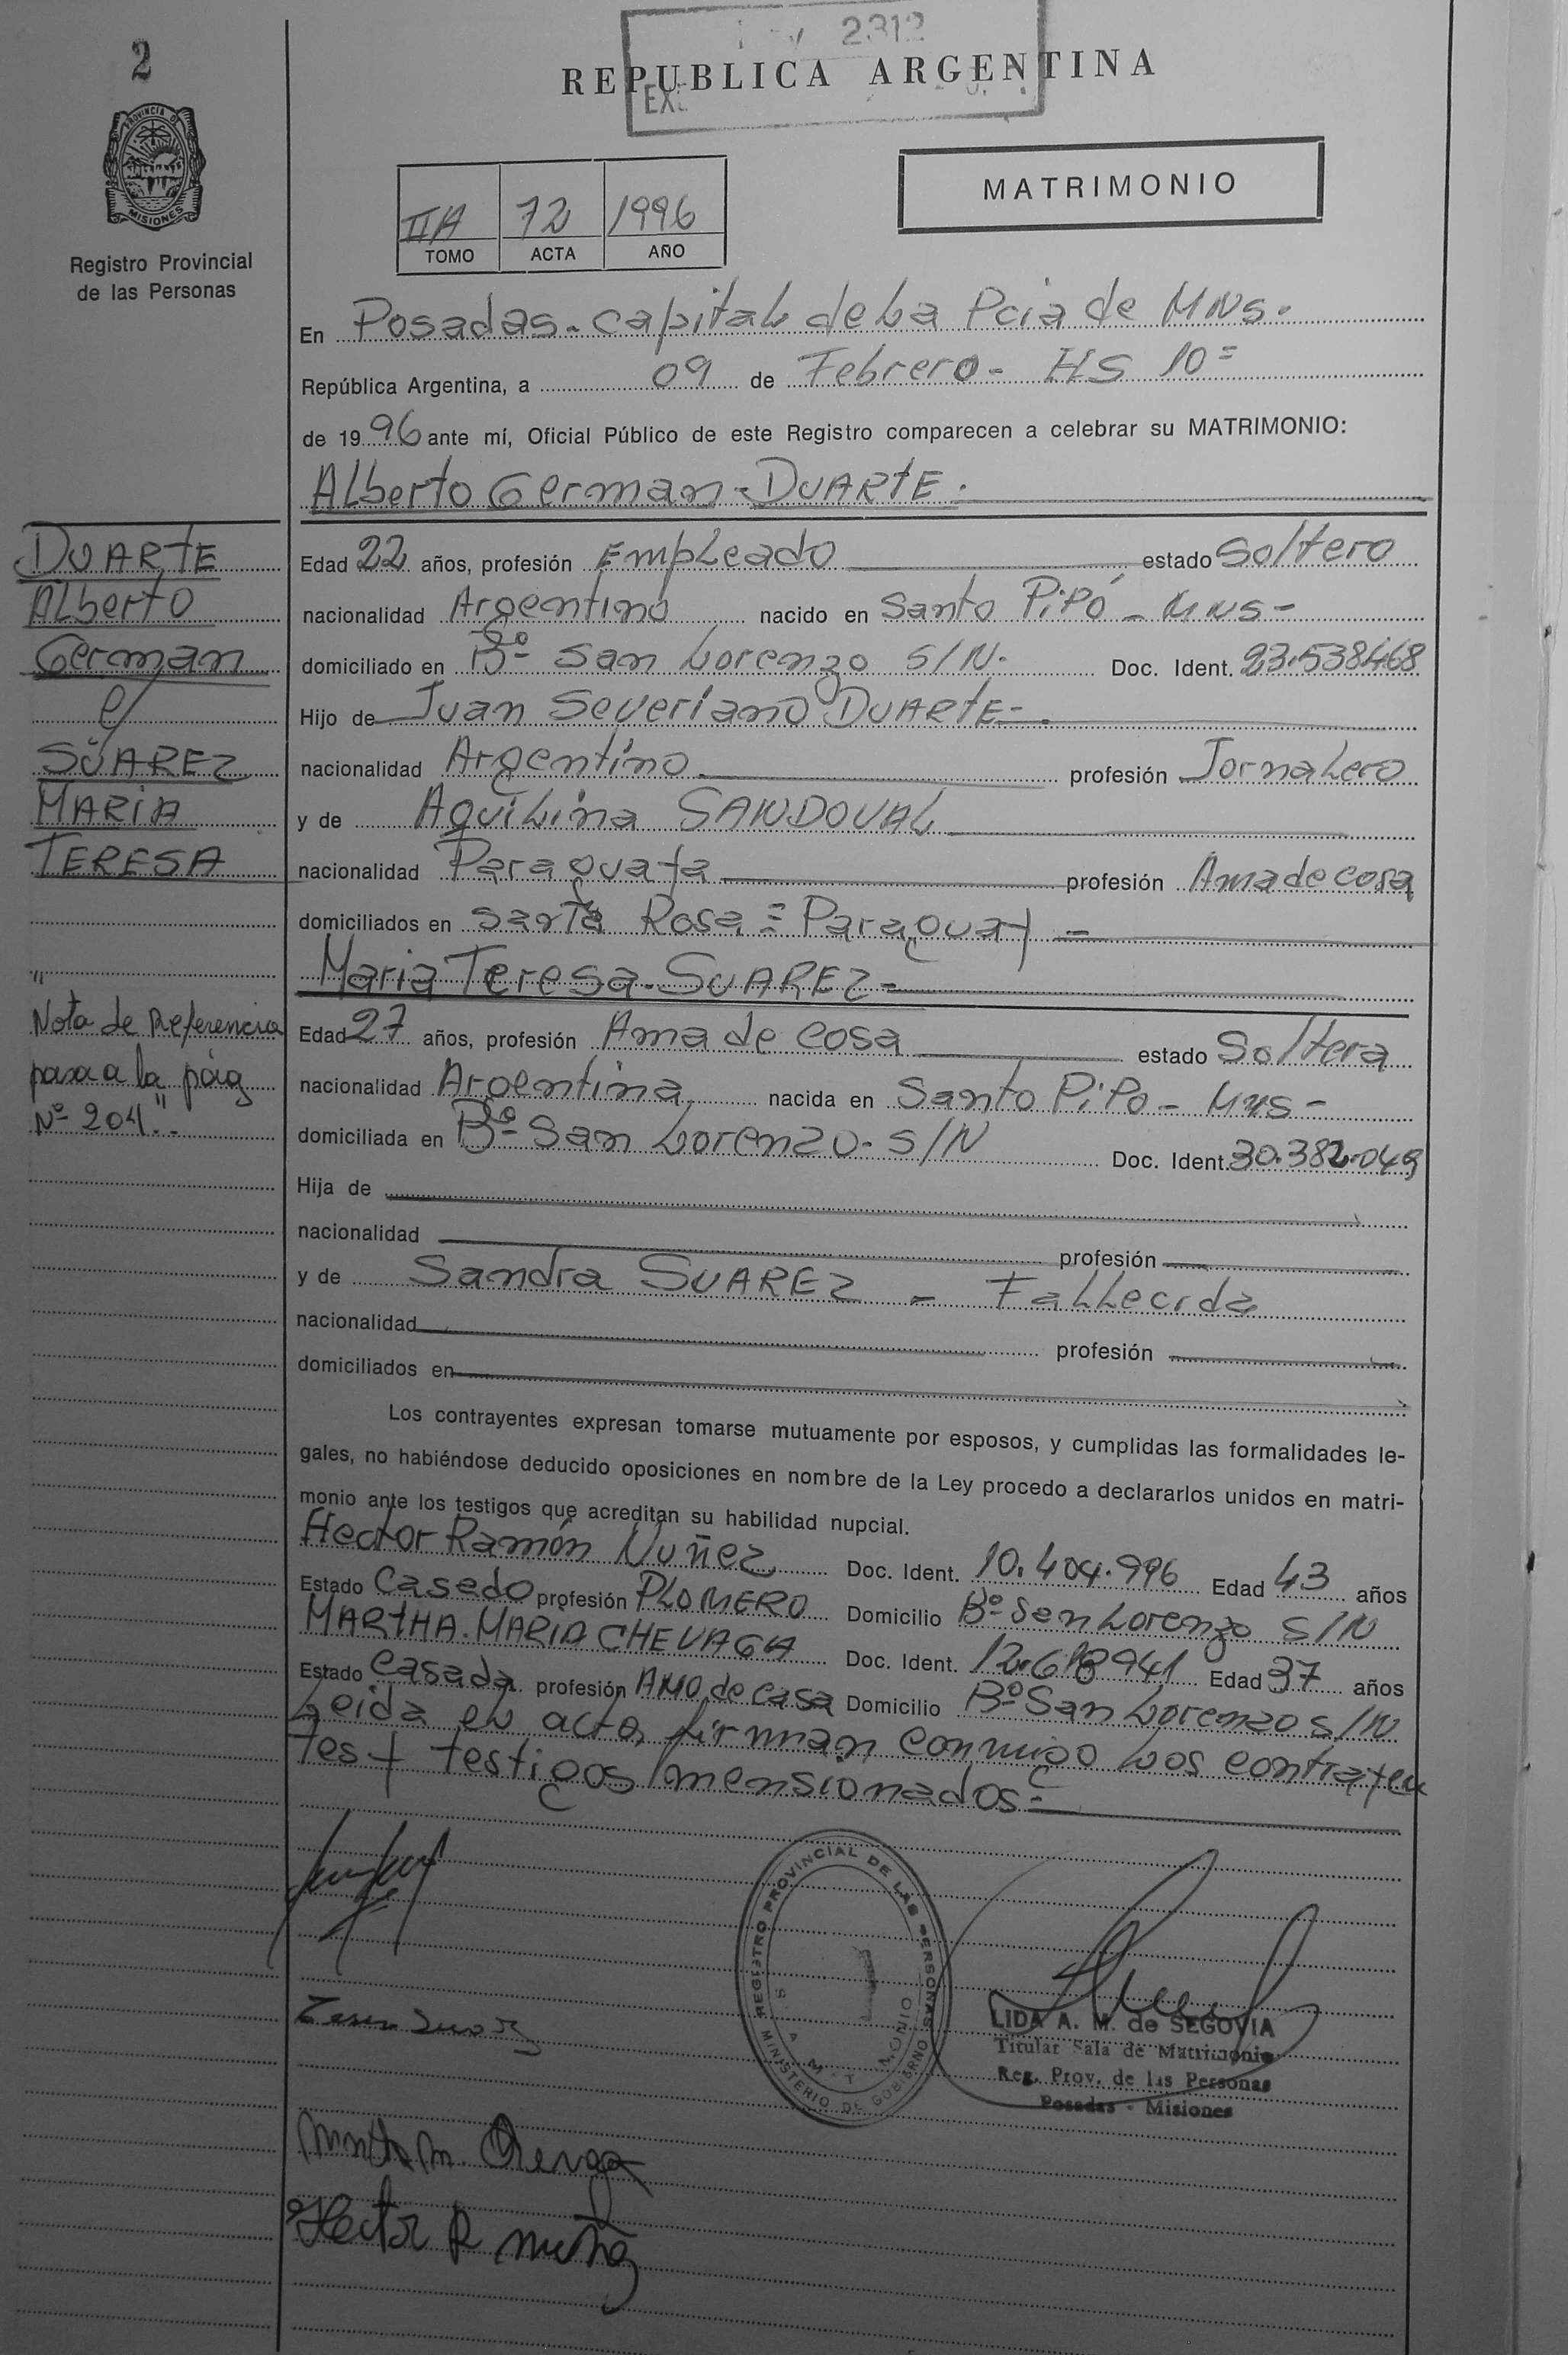 2
2312
REPUBLICA ARGENTINA
PROVINCIA DE
MISIONES
Registro Provincial
de las Personas
MATRIMONIO
IIA 72 1996
TOMO ACTA AÑO
En Posadas-capital de la Pcia de MNS.
República Argentina, a 09 de Febrero- HS 10=
de 1996 ante mí, Oficial Público de este Registro comparecen a celebrar su MATRIMONIO:
Alberto German-DUARTE.
DUARTE
Alberto
German
y
SUAREZ
MARIA
TERESA
"
Nota de Referencia
pasa a la pág
Nº 204."
Edad 22 años, profesión Empleado estado Soltero
nacionalidad Argentino nacido en Santo Pipó - MNS-
domiciliado en Bº San Lorenzo S/N. Doc. Ident. 23.538468
Hijo de Juan Severiano DUARTE-.
nacionalidad Argentino profesión Jornalero
y de Aquilina SANDOVAL
nacionalidad Paraguaya profesión Ama de casa
domiciliados en Santa Rosa = Paraguay -
Maria Teresa-SUAREZ-
Edad 27 años, profesión Ama de casa estado Soltera
nacionalidad Argentina nacida en Santo Pipo - MNS-
domiciliada en Bº San Lorenzo- S/N Doc. Ident. 30.382.049
Hija de
nacionalidad profesión
y de Sandra SUAREZ - Fallecida
nacionalidad profesión
domiciliados en
Los contrayentes expresan tomarse mutuamente por esposos, y cumplidas las formalidades le-
gales, no habiéndose deducido oposiciones en nombre de la Ley procedo a declararlos unidos en matri-
monio ante los testigos que acreditan su habilidad nupcial.
Hector Ramón Nuñez Doc. Ident. 10.404.996 Edad 43 años
Estado Casado profesión PLOMERO Domicilio Bº San Lorenzo S/N
MARTHA.MARIA CHEVAGA Doc. Ident. Edad 37 años
Estado Casada profesión AMA de casa Domicilio Bº San Lorenzo S/N
Leida el acta, firman conmigo los contrayen
tes y testigos mensionados=
REGISTRO PROVINCIAL DE LAS PERSONAS
MINISTERIO DE GOBIERNO
LIDA A. M. de SEGOVIA
Titular Sala de Matrimonio
Reg. Prov. de las Personas
Posadas - Misiones
Hector R Nuñez